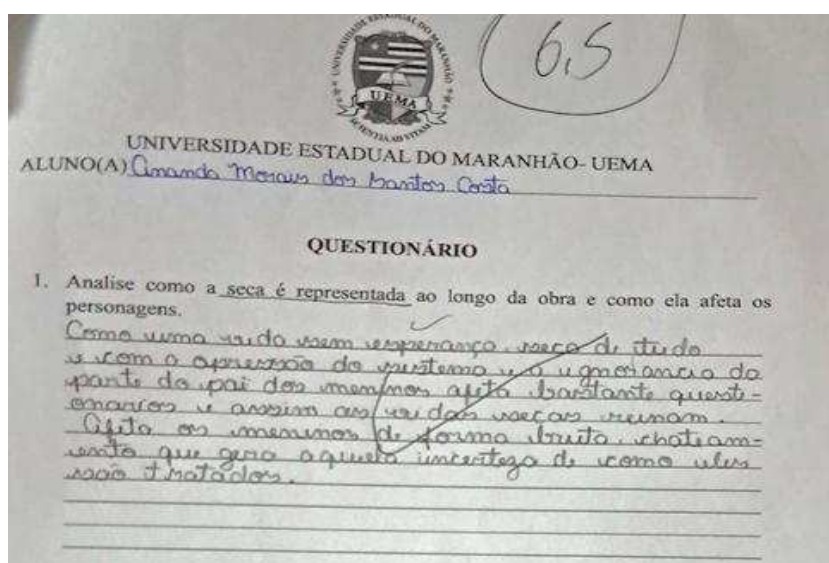 UNIVERSIDADE ESTADUAL DO MARANHÃO
UEMA
SCIENTIA AD VITAM
6,5
UNIVERSIDADE ESTADUAL DO MARANHÃO- UEMA
ALUNO(A) Amanda Morais dos Santos Costa
QUESTIONÁRIO
1. Analise como a seca é representada ao longo da obra e como ela afeta os
personagens.
Como uma vida sem esperança, seca de tudo
e com a opressão do sistema e a ignorancia da
parte do pai dos meninos afeta bastante questi-
onarios e assim as vidas secas reinam.
Afeta os meninos de forma bruta, chateam-
ento que gera aquela incerteza de como eles
são tratados.